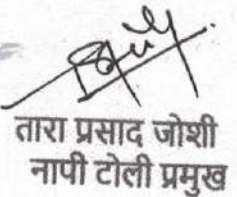 तारा प्रसाद जोशी
नापी टोली प्रमुख